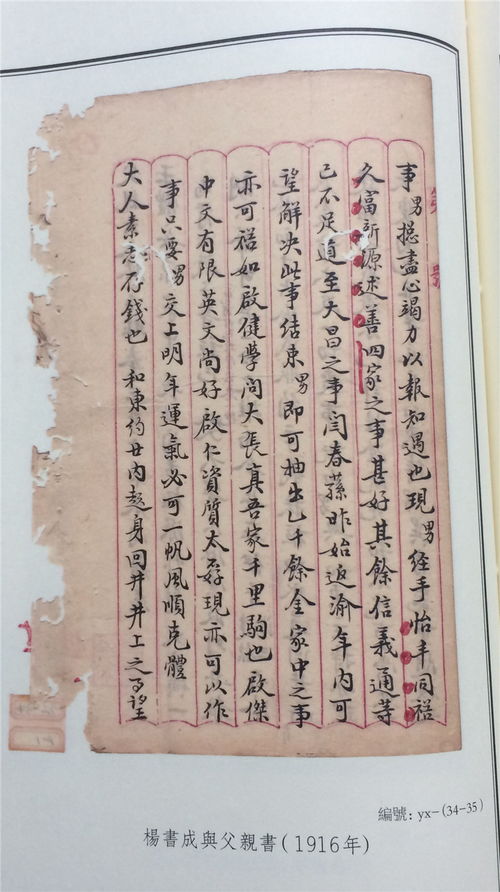 事男摠盡心竭力以報知遇也現男經手怡丰同裕
久富新源述善四家之事甚好其餘信義通等
已不足道至大昌之事閆春蓀昨始返渝年内可
望解决此事结束男即可抽出乙千餘金家中之事
亦可裕如啟健學问大張真吾家千里駒也啟傑
中文有限英文尚好啟仁資質太好現亦可以作
事只要男交上明年運氣必可一帆風順克體
大人素志存钱也 和東约廿内起身回井井上之事望
編號：yx-(34-35)
楊書成與父親書(1916年)